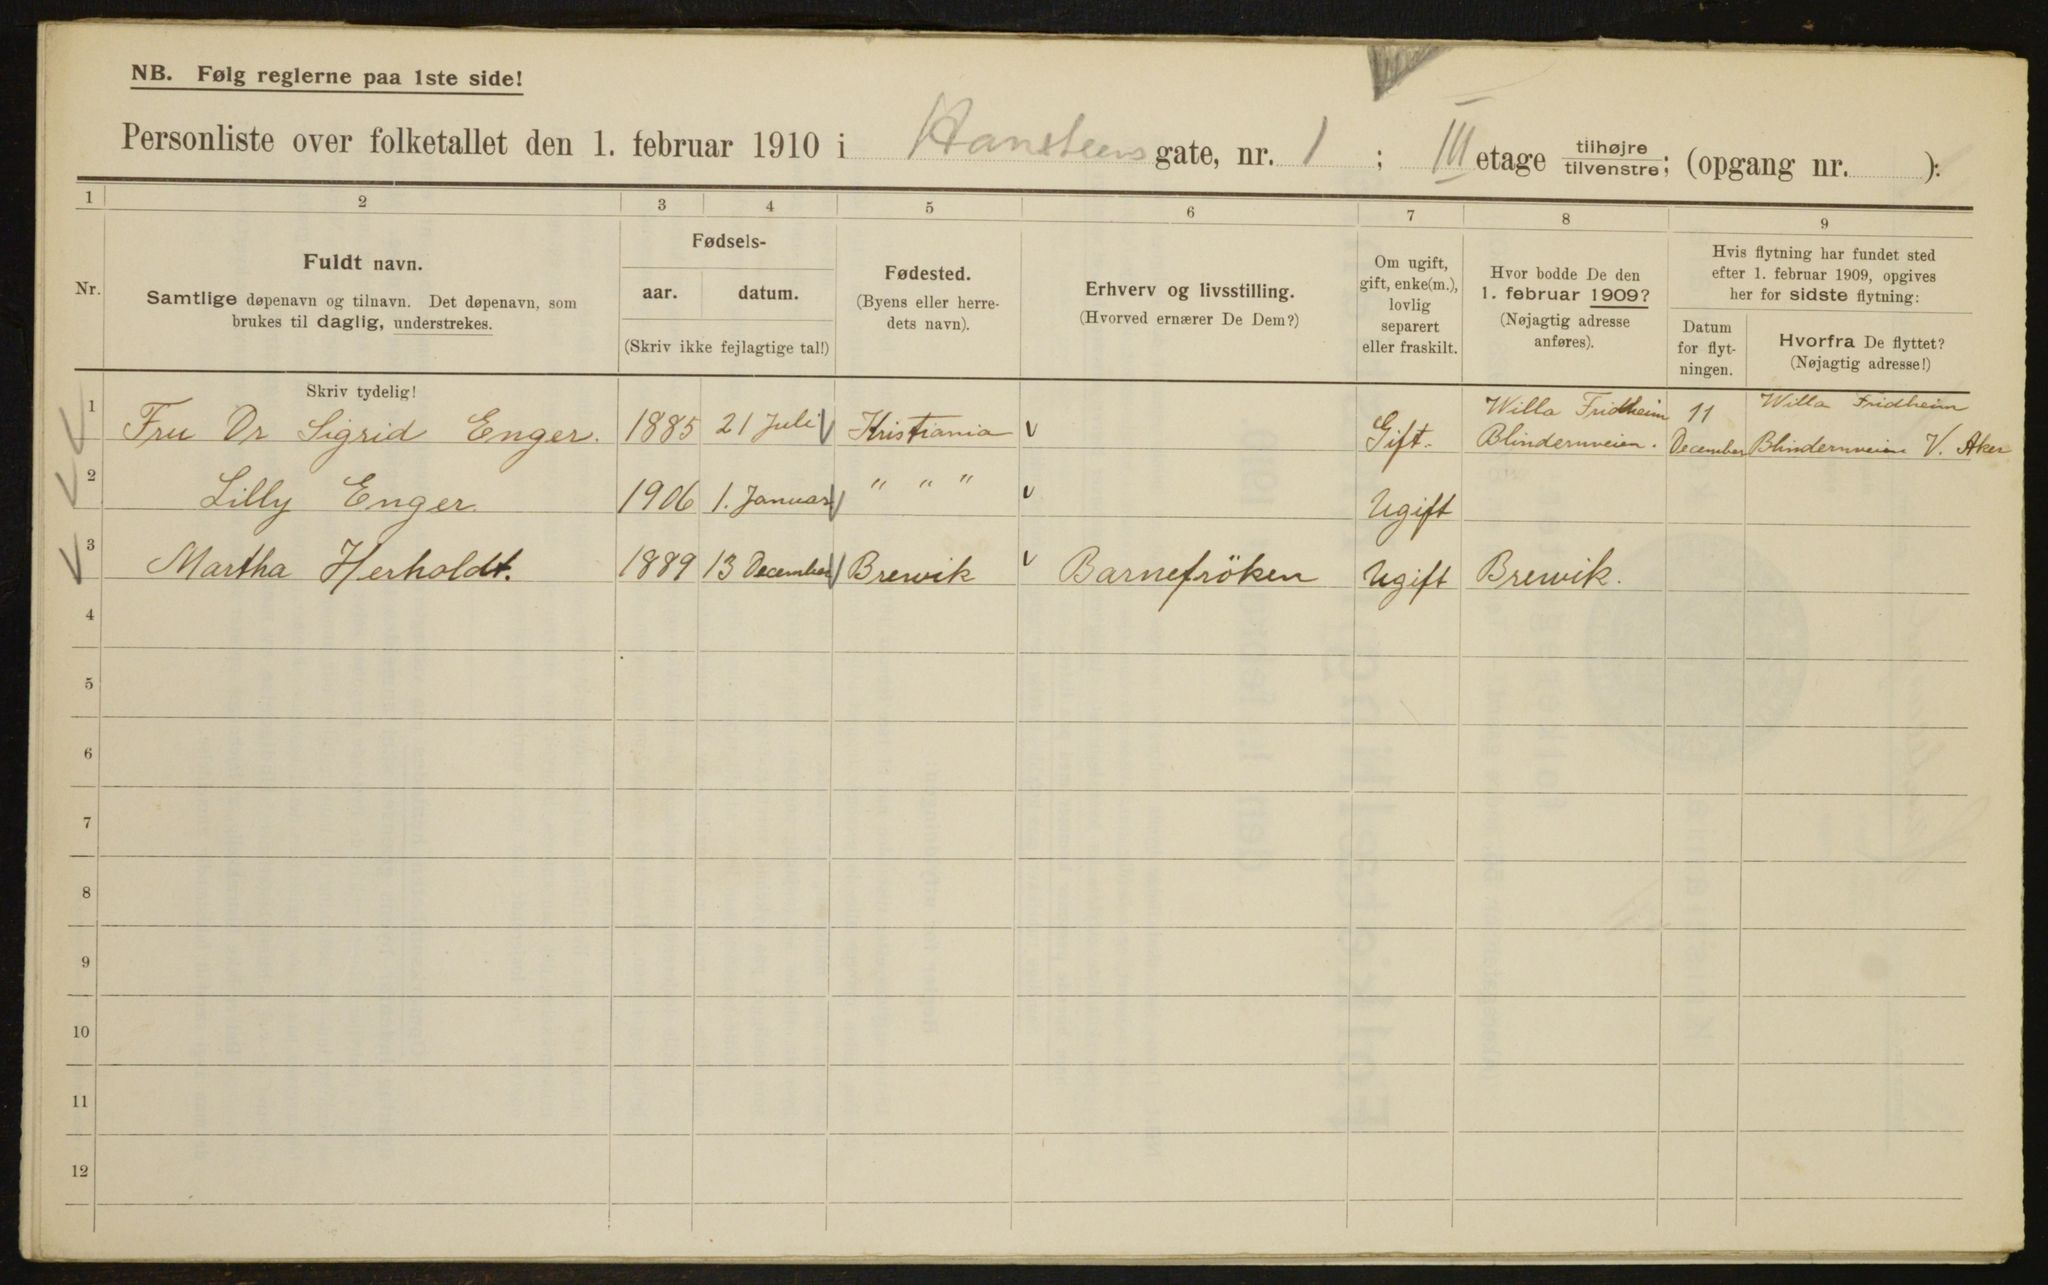 NB. Følg reglerne paa 1ste side!
Personliste over folketallet den 1. februar 1910 i Hansteens gate, nr. 1 ; III etage tilhøjre / tilvenstre; (opgang nr. ):
1 2 3 4 5 6 7 8 9
Nr.
Fuldt navn.
Samtlige døpenavn og tilnavn. Det døpenavn, som
brukes til daglig, understrekes.
Fødsels-
aar. datum.
(Skriv ikke fejlagtige tal!)
Fødested.
(Byens eller herre-
dets navn).
Erhverv og livsstilling.
(Hvorved ernærer De Dem?)
Om ugift,
gift, enke(m.),
lovlig
separert
eller fraskilt.
Hvor bodde De den
1. februar 1909?
(Nøjagtig adresse
anføres).
Hvis flytning har fundet sted
efter 1. februar 1909, opgives
her for sidste flytning:
Datum
for flyt-
ningen.
Hvorfra De flyttet?
(Nøjagtig adresse!)
Skriv tydelig!
1 Fru Dr Sigrid Enger. 1885 21 Juli Kristiania Gift. Willa Fridheim Blindernveien. 11 December Willa Fridheim Blindernveien V. Aker
2 Lilly Enger. 1906 1. Januar " " " Ugift
3 Martha Herholdt. 1889 13 December Brewik Barnefröken Ugift Brewik.
4
5
6
7
8
9
10
11
12